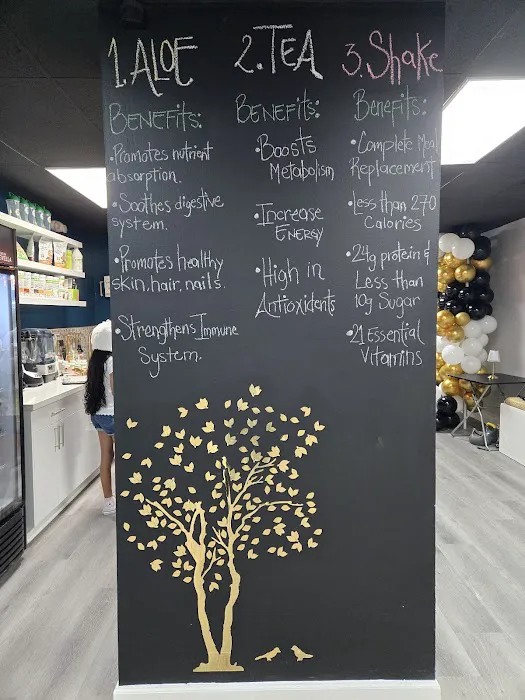 1. ALOE
BENEFITS:
•Promotes nutrient
absorption.
•Soothes digestive
system.
•Promotes healthy
skin, hair, nails.
•Strengthens Immune
System.
2. TEA
BENEFITS:
•Boosts
Metabolism
•Increase
ENERGY
•High in
Antioxidents
3. Shake
Benefits:
•Complete Meal
Replacement
•Less than 270
Calories
•24g protein &
Less than
10g Sugar
•21 Essential
Vitamins